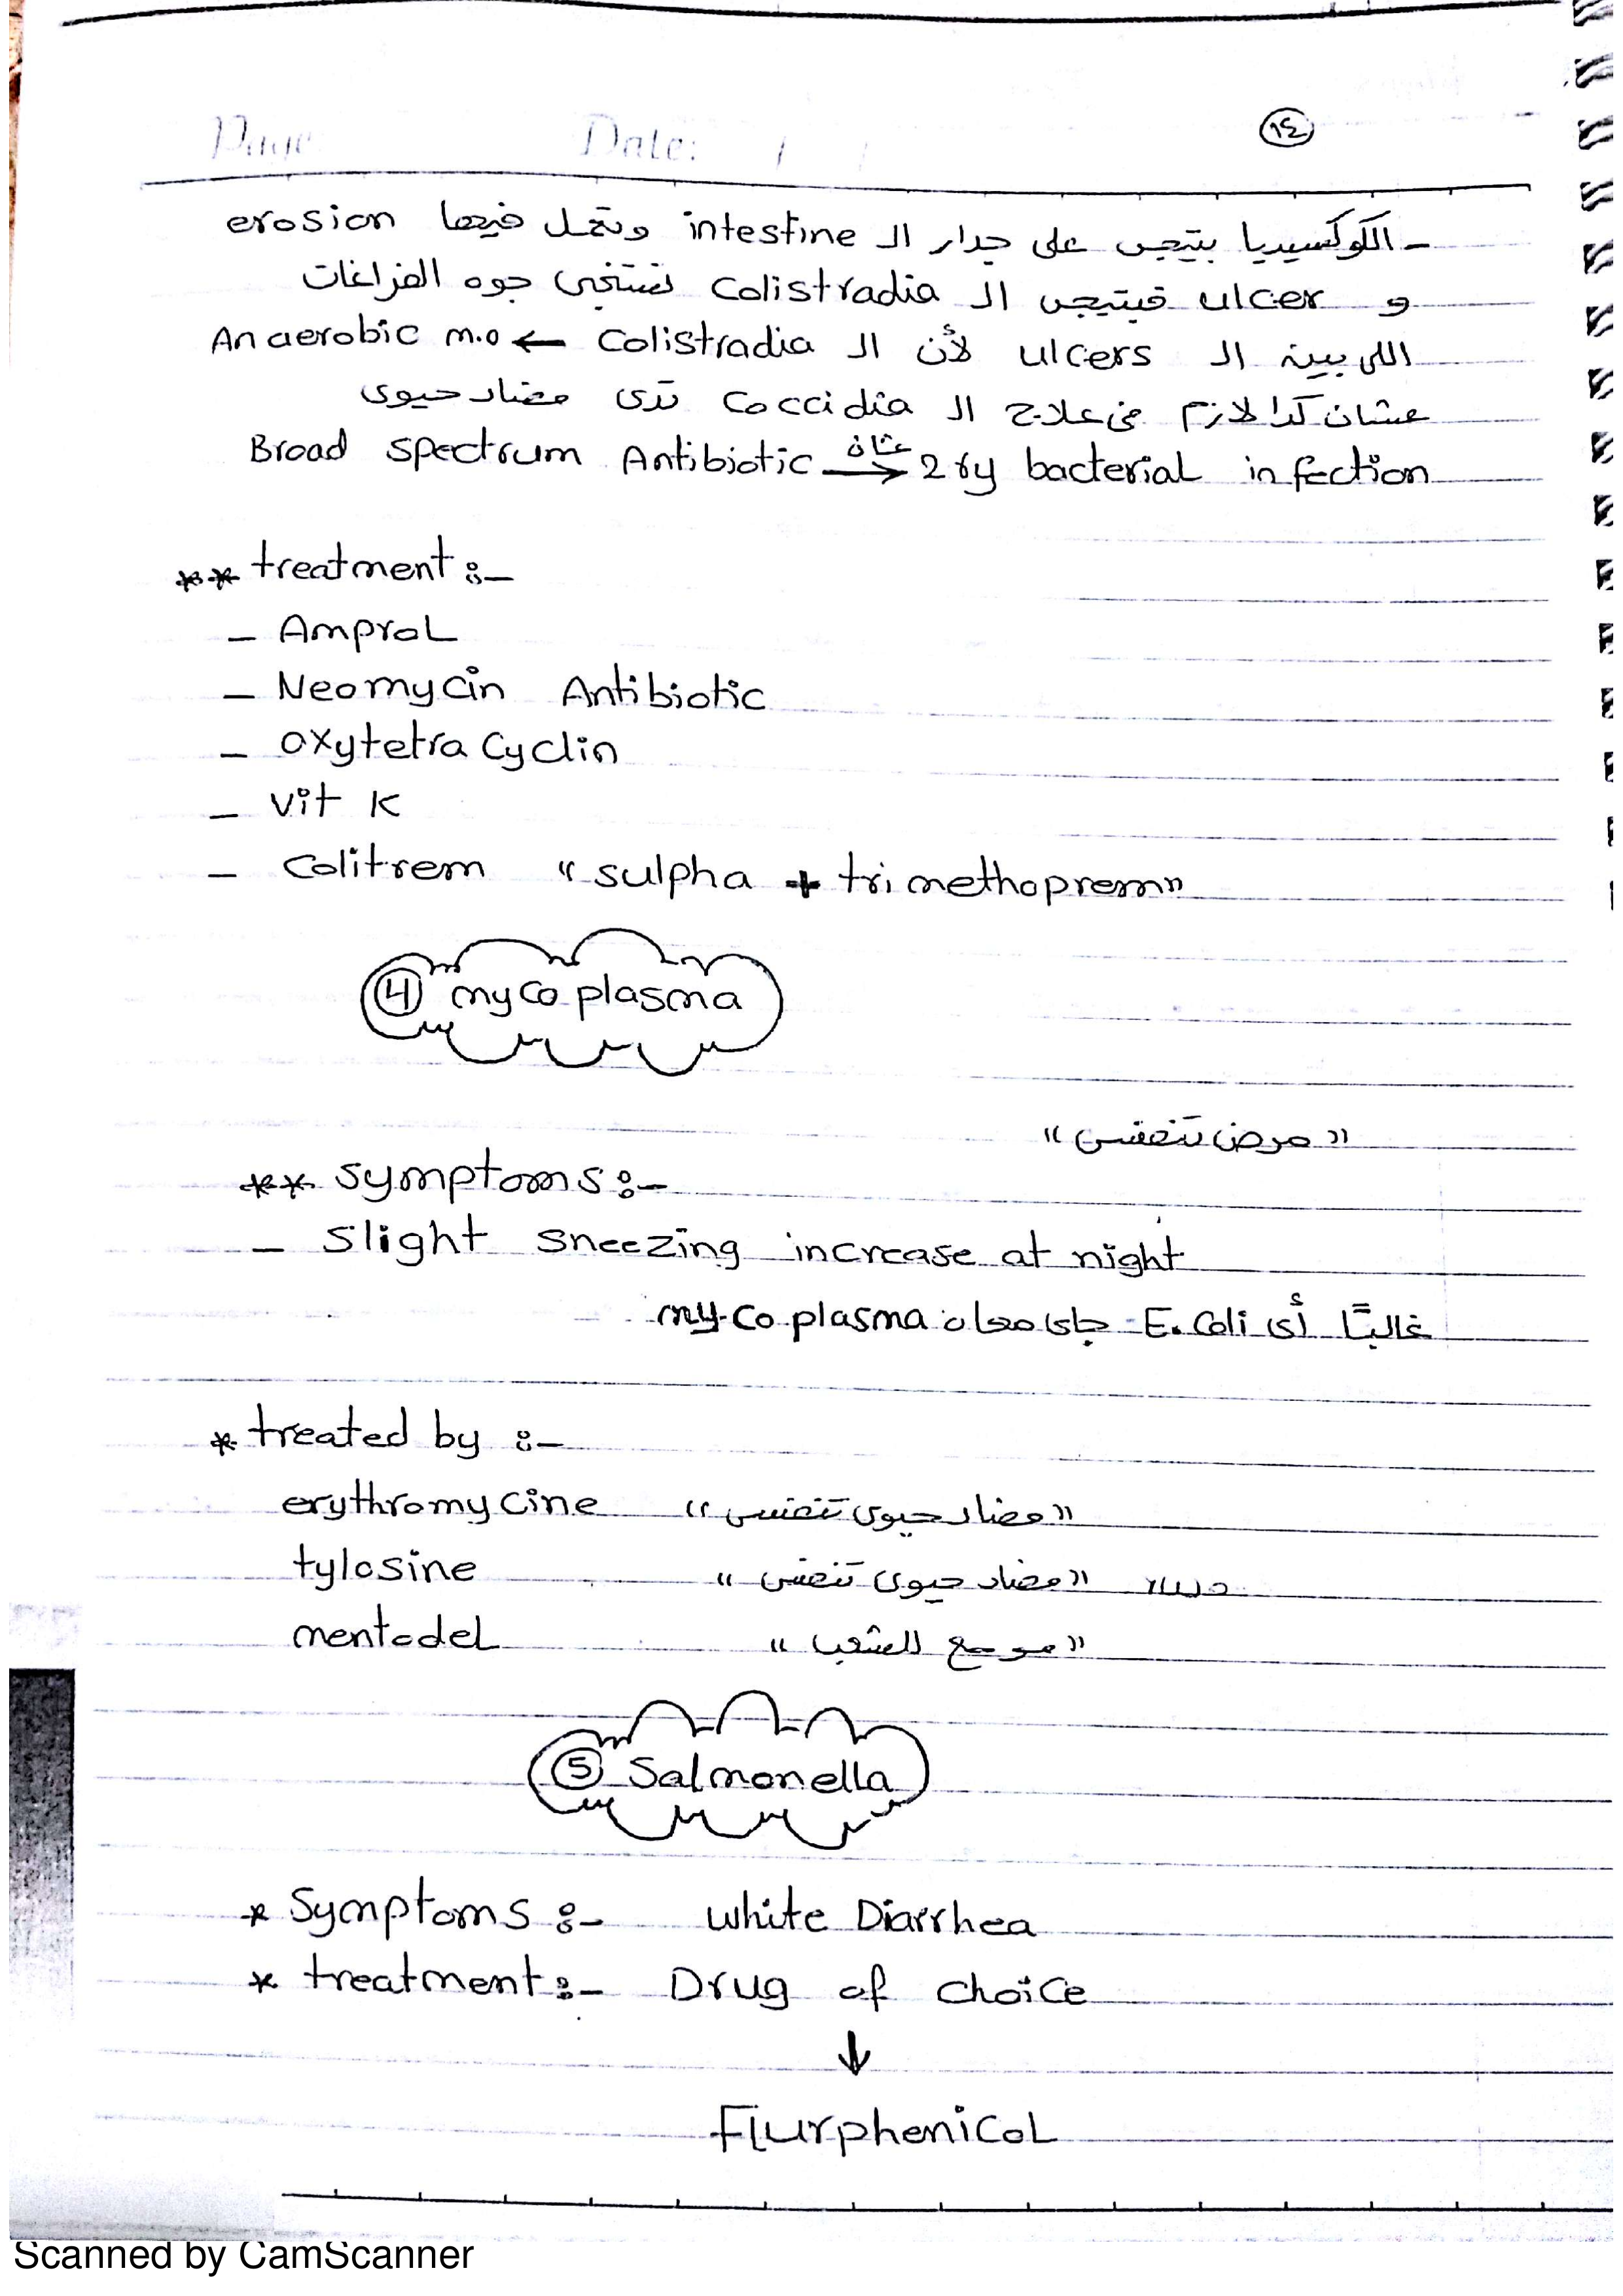 Page: Date: / /
١٤
- الكوكسيديا بتيجى على جدار الـ intestine وتعمل فيها erosion
و ulcer فبتيجى الـ Colistradia تستخبى جوه الفراغات
اللى بين الـ ulcers لأن الـ Colistradia ← Anaerobic m.o
عشان كدا لازم فى علاج الـ Coccidia تدى مضاد حيوى
Broad spectrum Antibiotic عشان → 2ry bacterial infection
** treatment :-
- Amprol
- Neomycin Antibiotic
- oxytetracyclin
- vit K
- Colitrem "sulpha + trimethoprem"
④ mycoplasma
"مرض تنفسى"
** symptoms :-
- slight sneezing increase at night
غالبًا أى E.Coli جاى معاه mycoplasma
* treated by :-
erythromycine "مضاد حيوى تنفسى"
tylosine "مضاد حيوى تنفسى"
mentodel "موسع للشعب"
⑤ Salmonella
* Symptoms :- white Diarrhea
* treatment :- Drug of choice
↓
Flurphenicol
Scanned by CamScanner